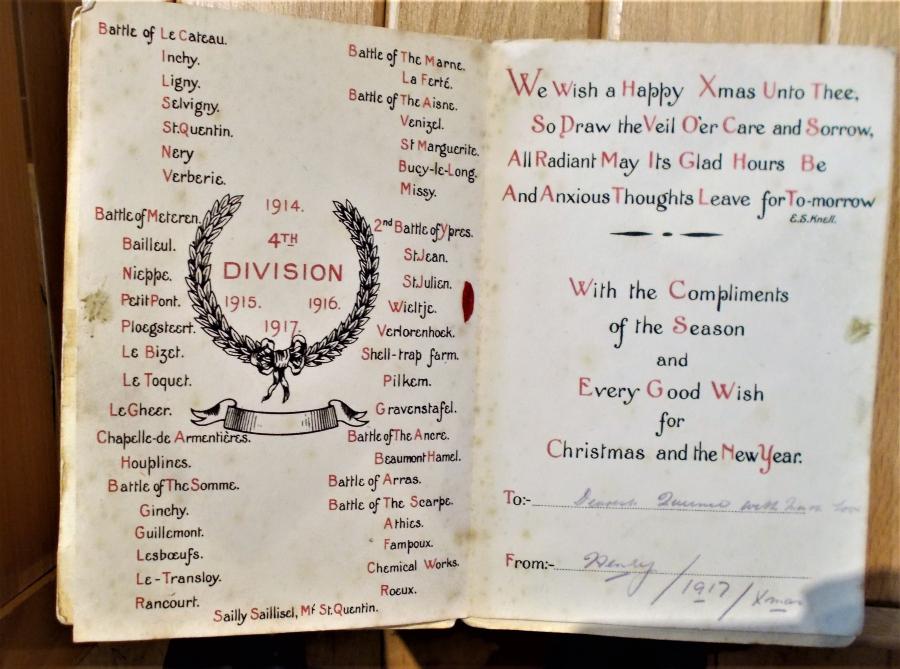 Battle of Le Cateau.
Inchy.
Ligny.
Selvigny.
St.Quentin.
Nery
Verberie.
Battle of Meteren.
Bailleul.
Nieppe.
Petit Pont.
Ploegsteert.
Le Bizet.
Le Toquet.
Le Gheer.
Chapelle-de Armentières.
Houplines.
Battle of The Somme.
Ginchy.
Guillemont.
Lesbœufs.
Le-Transloy.
Rancourt.
Sailly Saillisel, Mt St.Quentin.
1914.
4TH
DIVISION
1915. 1916.
1917.
Battle of The Marne.
La Ferté.
Battle of The Aisne.
Venizel.
St Marguerite.
Bucy-le-Long.
Missy.
2nd Battle of Ypres.
St.Jean.
St.Julien.
Wieltje.
Verlorenhoek.
Shell-trap farm.
Pilkem.
Gravenstafel.
Battle of The Ancre.
Beaumont Hamel.
Battle of Arras.
Battle of The Scarpe.
Athies.
Fampoux.
Chemical Works.
Roeux.
We Wish a Happy Xmas Unto Thee,
So Draw the Veil O'er Care and Sorrow,
All Radiant May Its Glad Hours Be
And Anxious Thoughts Leave for To-morrow
E.S.Knell.
With the Compliments
of the Season
and
Every Good Wish
for
Christmas and the New Year.
To:- Dearest with love
From:- Henry / 1917 / Xmas